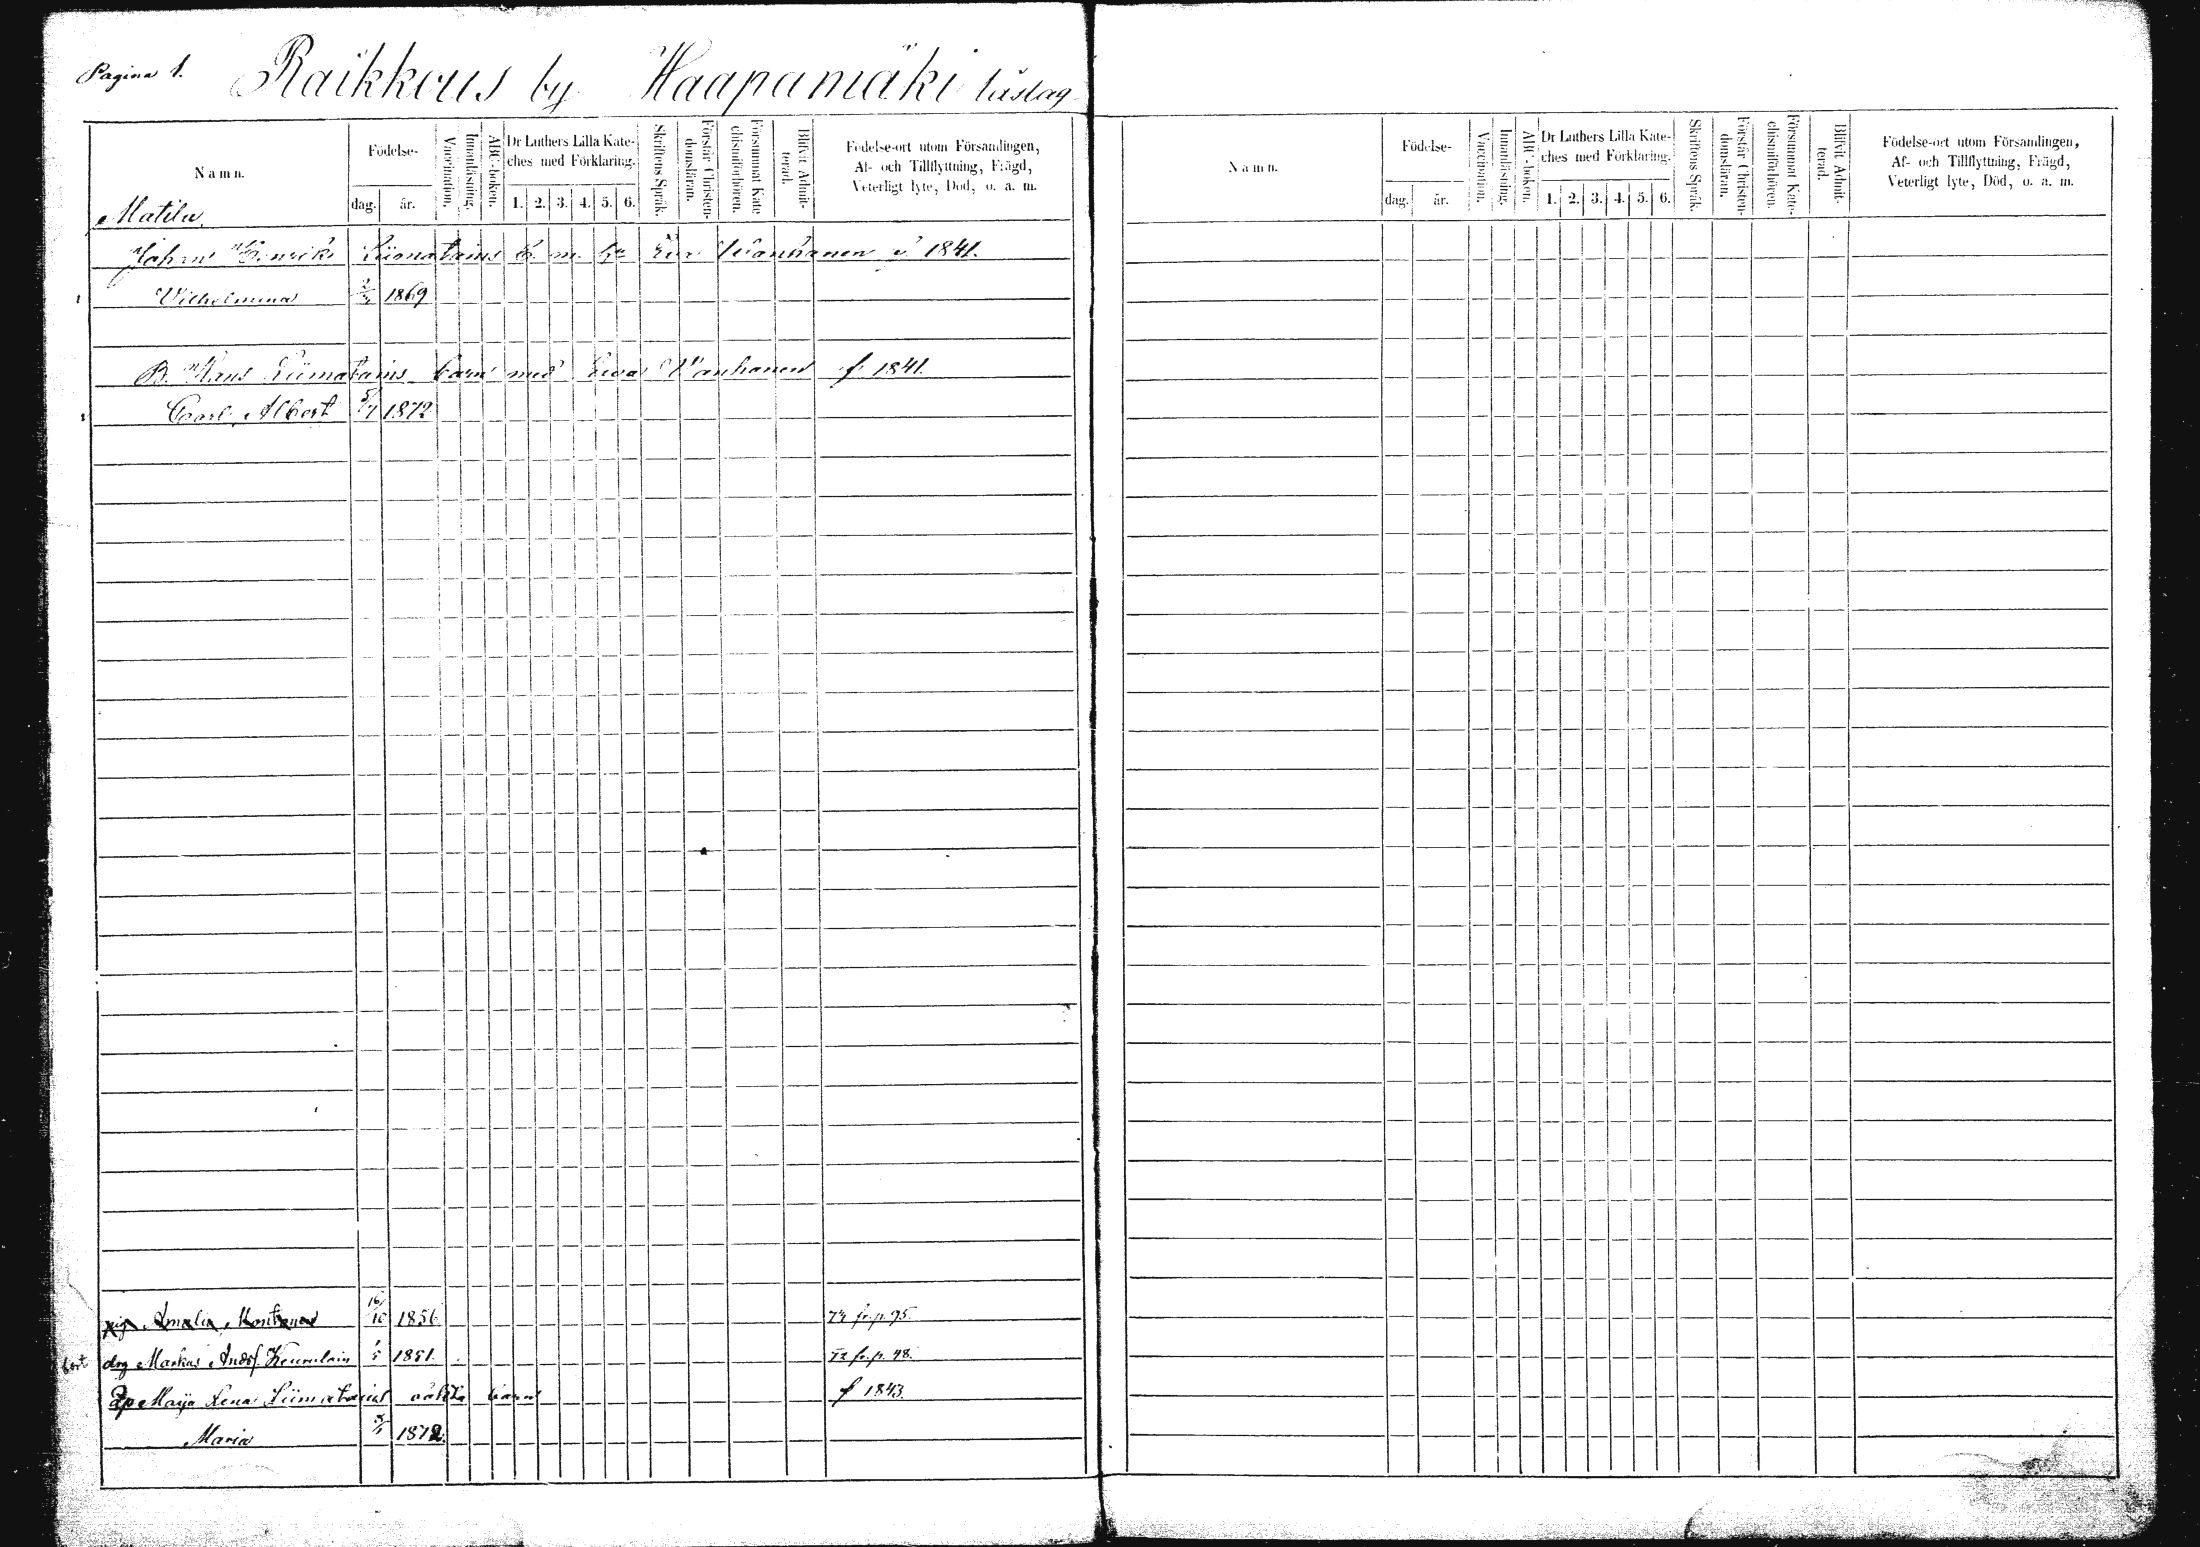 Pagina 1. Raikkous by Haapamäki läslag
Namn.
Födelse-
dag. år.
Vaccination.
Innanläsning.
ABC-boken.
Dr Luthers Lilla Kate-
ches med Förklaring.
1. 2. 3. 4. 5. 6.
Skriftens Språk.
Förstår Christen-
domsläran.
Försummat Kate
chismiförhören.
Blifvit Admit-
terad.
Födelse-ort utom Församlingen,
Af- och Tillflyttning, Frägd,
Veterligt lyte, Död, o. a. m.
Matila
Johan Henrik Liimatains b. m. h. Eva Wanhanen f 1841.
1 Vilhelmina 1869
B. Hans Liimatains barn med Eva Wanhanen f 1841.
Carl Albert 5/7 1872
pig Amalia 16/10 1856 73 fr. p. 95.
bort drg Markus Andsf. 1851. 72 fr. p. 48.
Maija Lena Liimatains oäkta barn f 1843.
Maria 1872.
Namn.
Födelse-
dag. år.
Vaccination.
Innanläsning.
ABC-boken.
Dr Luthers Lilla Kate-
ches med Förklaring.
1. 2. 3. 4. 5. 6.
Skriftens Språk.
Förstår Christen-
domsläran.
Försummat Kate-
chismiförhören.
Blifvit Admit-
terad.
Födelse-ort utom Församlingen,
Af- och Tillflyttning, Frägd,
Veterligt lyte, Död, o. a. m.